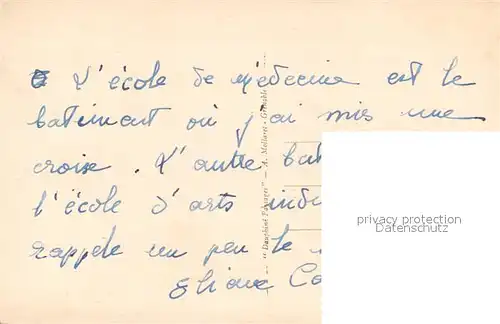 L'école de médecine est le
batiment où j'ai mis une
croix. L'autre bat
l'école d'arts indu
rappèle un peu le
Eliane Co
"Dauphiné Paysages" — A. Mollaret - Grenoble
privacy protection
Datenschutz